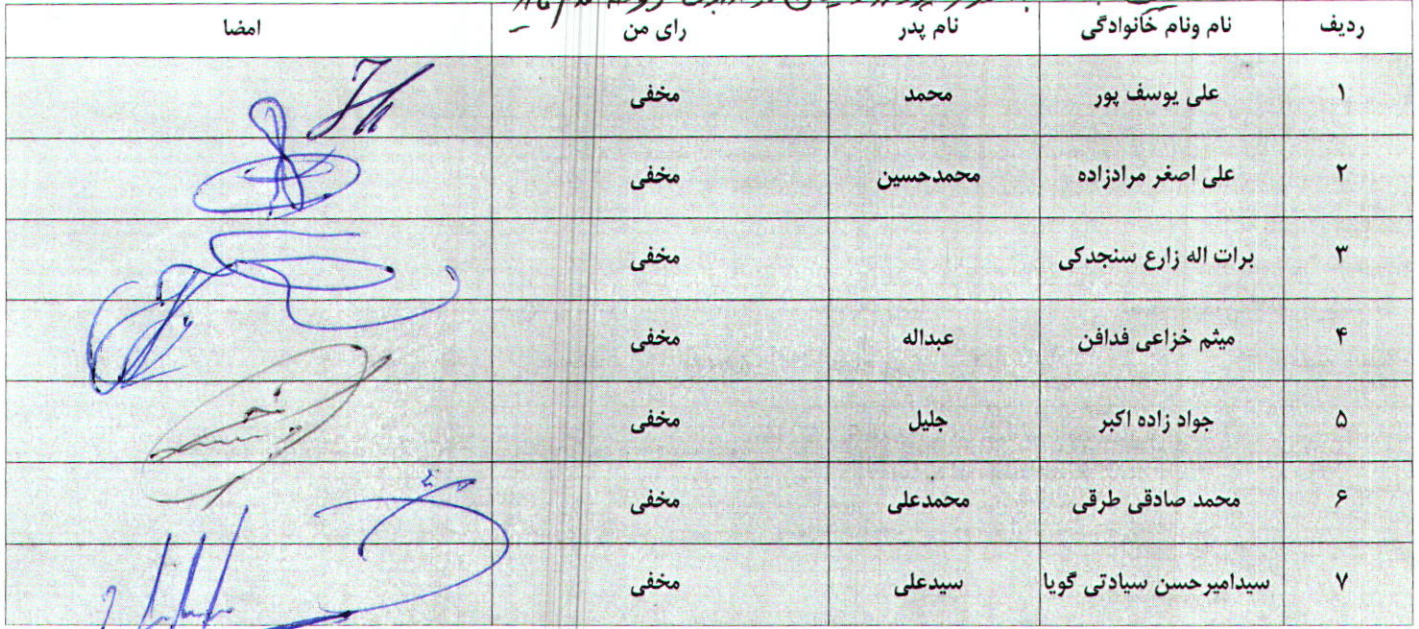 ردیف نام ونام خانوادگی نام پدر رای من امضا
۱ علی یوسف پور محمد مخفی
۲ علی اصغر مرادزاده محمدحسین مخفی
۳ برات اله زارع سنجدکی مخفی
۴ میثم خزاعی فدافن عبداله مخفی
۵ جواد زاده اکبر جلیل مخفی
۶ محمد صادقی طرقی محمدعلی مخفی
۷ سیدامیرحسن سیادتی گویا سیدعلی مخفی